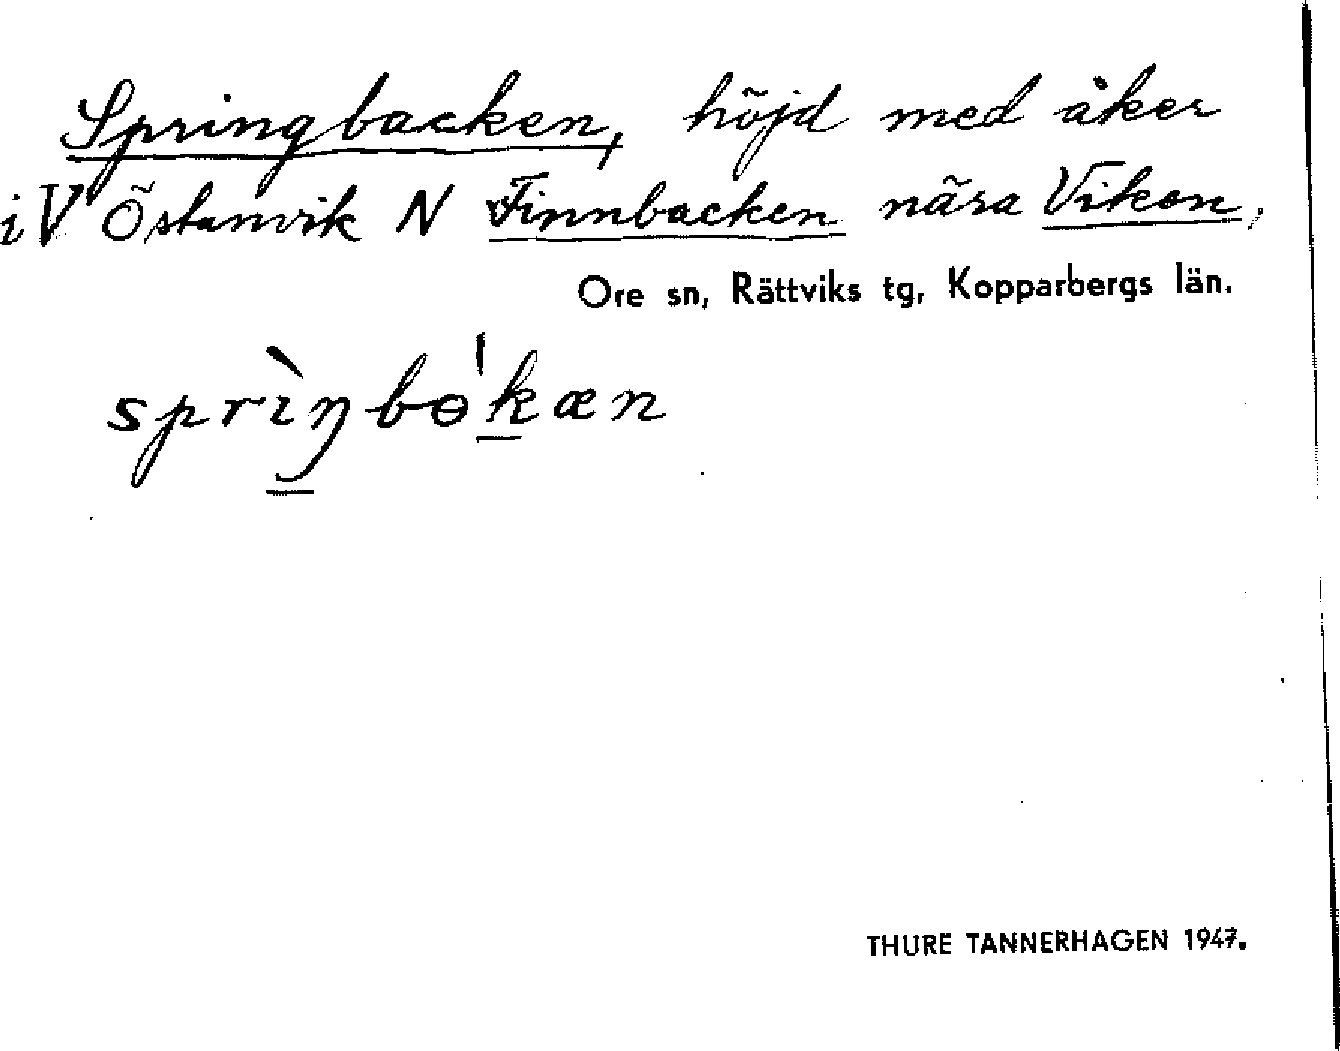 Springbacken, höjd med åker
i V Östanvik N Finnbacken nära Viken,
Ore sn, Rättviks tg, Kopparbergs län.
sprìŋbɵ'kæn
THURE TANNERHAGEN 1947.